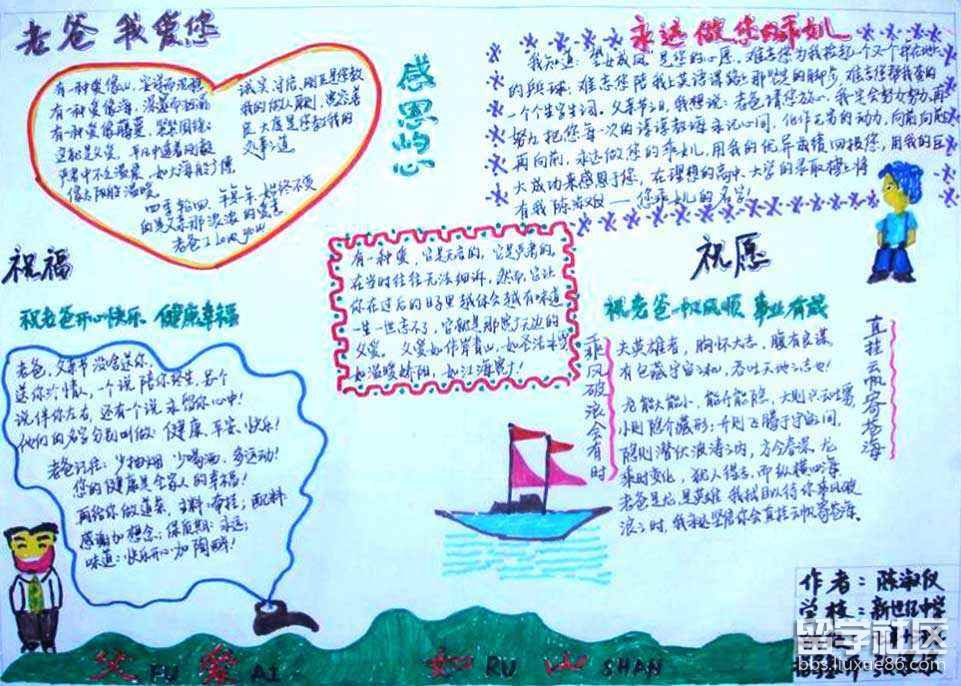 老爸 我爱您
有一种爱像山，
有一种爱像海，
有一种爱像
这就是父爱，
像太阳般温暖
四季轮回，年复年，始终不变
的是父亲那浓浓的爱意
老爸 I love you
诚实 守信，
我的做人原则，
大度是您教我的
处事之道
感恩的心
永远做您的乖女儿
我知道：望女成凤 是您的心愿，难忘您为我捡起一个又一个
的乒乓球；难忘您陪我上英语课踏上那坚定的脚步；难忘您帮我查的
一个个生字生词。父亲节之日，我想说：老爸请您放心，我定会努力努力再
努力 把您每一次的谆谆教诲 永记心间，化作无穷的动力，向前向前
再向前，永远做您的乖女儿，用我的优异成绩回报您，用我的巨
大成功来感恩于您，在理想的高中、大学的录取榜上将
有我陈淑仪——您乖女儿的名字！
祝福
祝老爸开心快乐 健康幸福
老爸，父亲节没啥送你，
送你 一个说 陪你终生，另个
说伴你左右，还有个说 永留你心中！
他们的名字分别叫做：健康、平安、快乐！
老爸记住：少抽烟 少喝酒，多运动！
您的健康是全家人的幸福！
再给你做道菜，主料：牵挂；配料
感谢加想念；保质期：永远；
味道：快乐开心加陶醉！
有一种爱，它是无言的，它是严肃的，
在当时往往无法细诉，然而，它让
你在过后的日子里越体会越有味道
一生一世忘不了，它就是那宽广无边的
父爱。父爱如伟岸青山，如圣洁冰雪
如温暖娇阳，如江海宽广！
祝愿
祝老爸一帆风顺 事业有成
乘风破浪会有时
直挂云帆济沧海
夫英雄者，胸怀大志，腹有良谋，
有包藏宇宙之机，吞吐天地之志也！
龙能大能小，能升能隐，大则兴云吐雾，
小则隐介藏形；升则飞腾于宇宙间，
隐则潜伏浪涛之内，方今春深，龙
乘时变化，犹人得志，而纵横四海。
老爸是龙是英雄 我拭目以待 你乘风破
浪之时，我永远坚信你会直挂云帆济沧海。
作者：陈淑仪
学校：新世纪中学
父 FU 爱 AI 如 RU 山 SHAN
留学社区
bbs.liuxue86.com